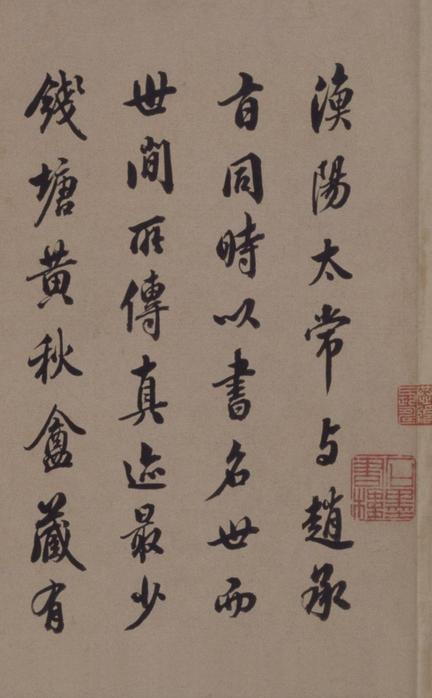 漁陽太常与趙承
旨同時以書名世而
世間所傳真迹最少
錢塘黃秋盦藏有
石墨書樓